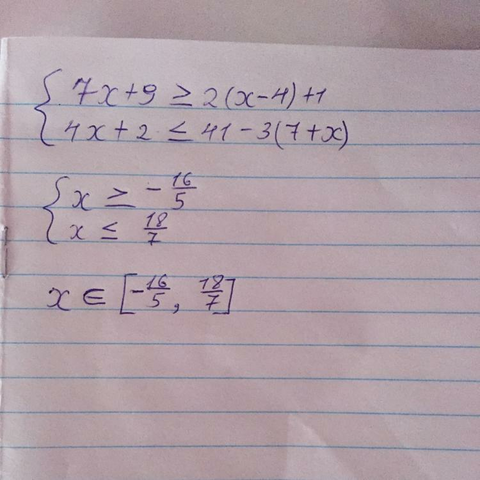 { 7x+9 ≥ 2(x-4)+1
4x+2 ≤ 41-3(7+x)
{ x ≥ -16/5
x ≤ 18/7
x ∈ [-16/5, 18/7]